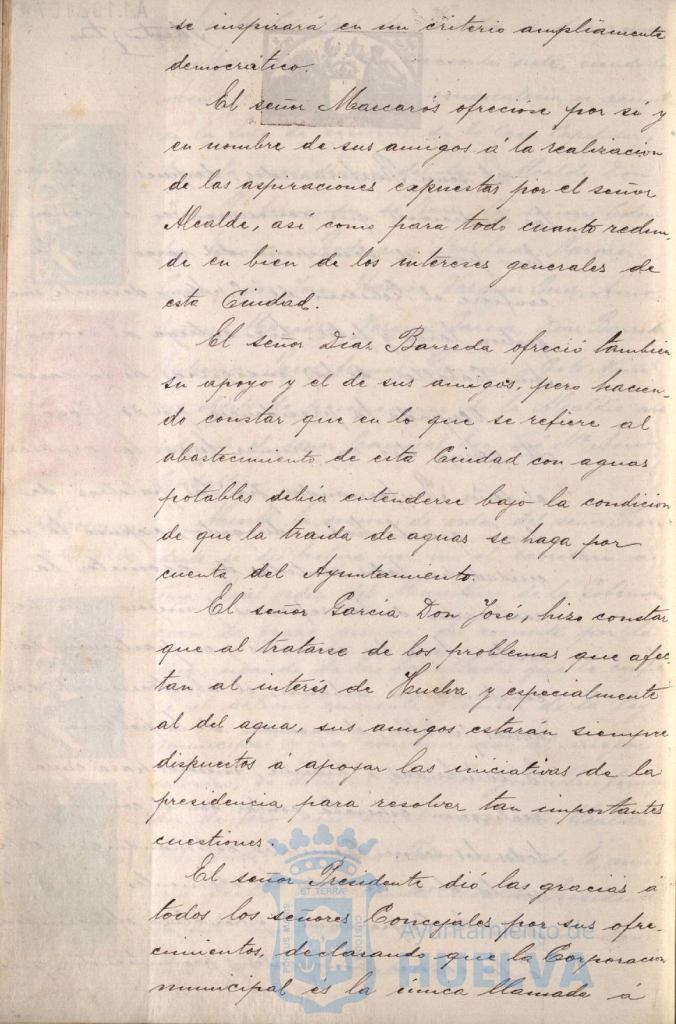 se inspirará en un criterio ampliamente
democrático.
El señor Mascarós ofrecióse por sí y
en nombre de sus amigos á la realizacion
de las aspiraciones expuestas por el señor
Alcalde, así como para todo cuanto redun-
de en bien de los intereses generales de
esta Ciudad.
El señor Diaz Barreda ofreció tambien
su apoyo y el de sus amigos, pero hacien-
do constar que en lo que se refiere al
abastecimiento de esta Ciudad con aguas
potables debia entenderse bajo la condicion
de que la traida de aguas se haga por
cuenta del Ayuntamiento.
El señor Garcia Don José, hizo constar
que al tratarse de los problemas que afec-
tan al interés de Huelva y especialmente
al del agua, sus amigos estarán siempre
dispuestos á apoyar las iniciativas de la
presidencia para resolver tan importantes
cuestiones.
El señor Presidente dió las gracias á
todos los señores Concejales por sus ofre-
cimientos, declarando que la Corporacion
municipal es la única llamada á
PORTUS MARIS
ET TERRAE
CUSTODIA
Ayuntamiento de
HUELVA